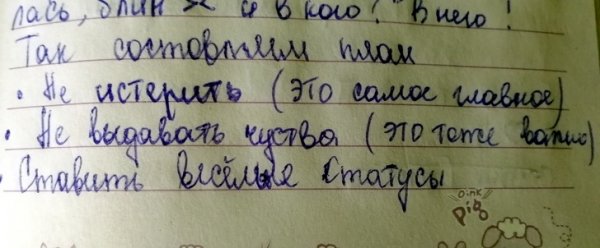 лась, блин и в кого? В него!
Так состовляем план
• Не истерить (это самое главное)
• Не выдавать чуства (это тоже важно)
• Ставить весёлые статусы
oink
pig